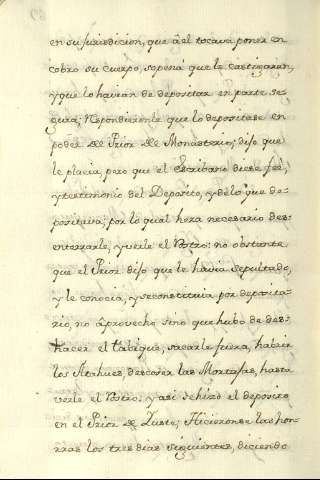 en su Jurisdicion, que à el tocava poner en
cobro su cuerpo, sopena que le castigaran,
y que lo havian de depositar en parte se-
gura; Repondieronle que lo depositase en
poder del Prior del Monasterio; dijo que
le placia, pero que el Escribano diese feé,
y testimonio del Deposito, y de lo que de-
positava; por lo qual hera necesario des-
enterrarle, y verle el Rostro: no obstante
que el Prior dijo que le havia sepultado,
y le conocia, y se constituia por deposita-
rio, no aprovecho sino que hubo de des-
hacer el tabique, sacarle fuera, habrir
los Atahues, descoser las Mortajas, hasta
verle el Rostro, y asi se hizo el deposito
en el Prior de Iuste; Hicieronse las hon-
rras los tres dias siguientes, diciendo